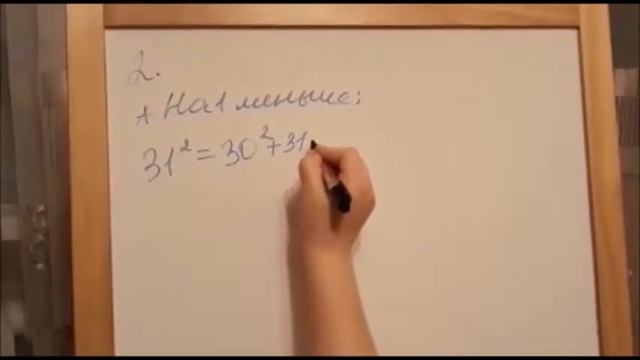 2.
+ На 1 меньше:
31² = 30² + 31